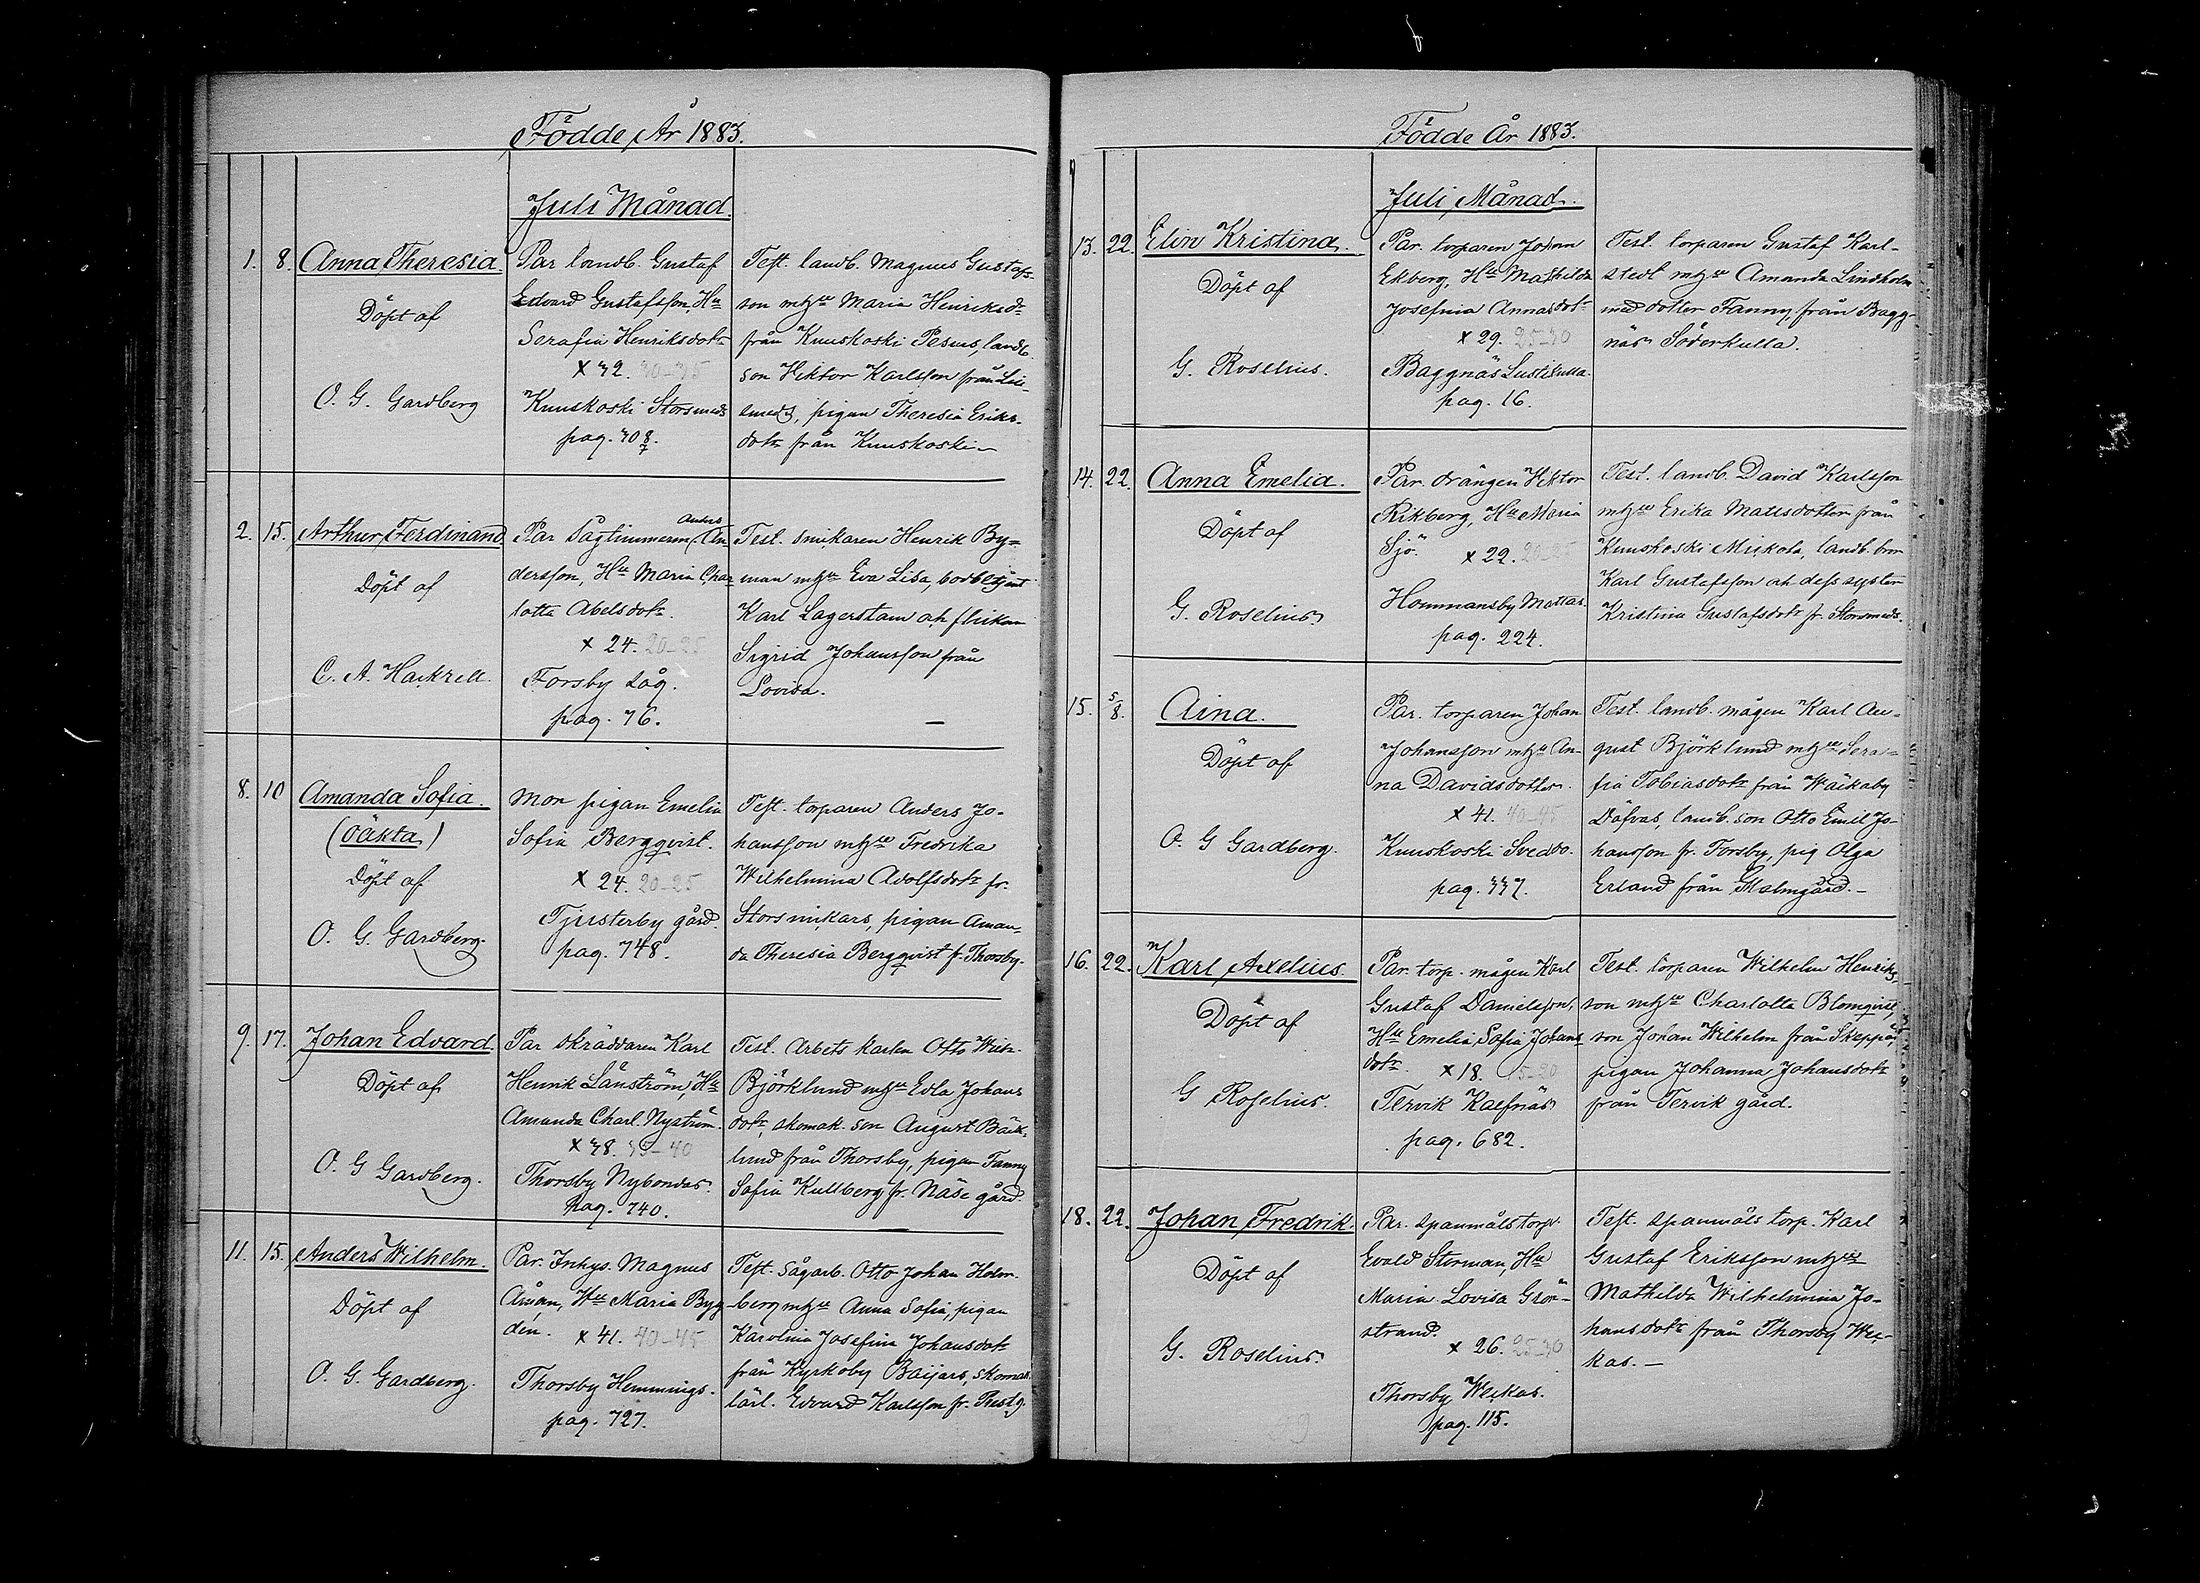 Födde År 1883.
Juli Månad.
1. 8. Anna Theresia.
Döpt af
O. G. Gardberg
Par landb. Gustaf
Edvard Gustafsson, Hu
Serafia Henriksdotr
x 32. 30-35
Kuuskoski Storsmeds
pag. 308.
Test. landb. Magnus Gustafs-
son mhzru Maria Henriksdr
från Kuuskoski Pesus, landb.
son Hiktor Karlsson från Lill-
smeds, pigan Theresia Eriks-
dotr från Kuuskoski
2. 15. Arthur Ferdinand
Döpt af
C. A. Hackzell.
Par Sågtimmerm. Anders An-
dersson, Hu Maria Char-
lotta Abelsdotr
x 24. 20-25
Forsby såg.
pag. 76.
Test. snickaren Henrik By-
man mhzru Eva Lisa, bodbetjent
Karl Lagerstam och flickan
Sigrid Johansson från
Lovisa.
8. 10 Amanda Sofia.
(oäkta)
Döpt af
O. G. Gardberg.
Mor pigan Emelia
Sofia Bergqvist.
x 24. 20-25
Tjusterby gård.
pag. 748.
Test. torparen Anders Jo-
hansson mhzru Fredrika
Wilhelmina Adolfsdotr fr.
Storsnickars, pigan Aman-
da Theresia Bergqvist fr. Thorsby.
9. 17. Johan Edvard.
Döpt af
O. G Gardberg.
Par skräddaren Karl
Henrik Lånström, Hu
Amanda Charl. Nyström.
x 38. 35-40
Thorsby Nybondas.
pag. 740.
Test. Arbets karlen Otto Wilh.
Björklund mhzru Edla Johans
dotr, skomak. son August Bäck-
lund från Thorsby, pigan Fanny
Sofia Kullberg fr. Näse gård.
11. 15. Anders Wilhelm.
Döpt af
O. G. Gardberg.
Par. Inhys. Magnus
Åman, Hu Maria Byg-
dén. x 41. 40-45
Thorsby Hemmings.
pag. 727.
Test. Sågarb. Otto Johan Holm-
berg mhzru Anna Sofia, pigan
Karolina Josefina Johansdotr
från Kyrkoby Baijars, skomak.
lärl. Edvard Karlsson fr. Prestg.
Födde År 1883.
Juli Månad.
13. 22. Elin Kristina.
Döpt af
G. Roselius.
Par. torparen Johan
Ekberg, Hu Mathilda
Josefina Annasdotr
x 29. 25-30
Baggnäs Lustikulla.
pag. 16.
Test. torparen Gustaf Karl-
stedt mhzru Amanda Lindholm
med dotter Fanny, från Bagg-
näs Söderkulla.
14. 22. Anna Emelia.
Döpt af
G. Roselius.
Par. drängen Hiktor
Rikberg, Hu Maria
Sjö. x 22. 20-25
Hommansby Mattas.
pag. 224.
Test. landb. David Karlsson
mhzru Erika Matsdotter från
Kuuskoski Mickola, landb. bror
Karl Gustafsson och dess syster
Kristina Gustafsdotr fr. Storsmeds.
15. 5/8. Aina.
Döpt af
O. G Gardberg.
Par. torparen Johan
Johansson mhzru An-
na Davidsdotter.
x 41. 40-45
Kuuskoski Svedbo.
pag. 337.
Test. landb. mågen Karl Au-
gust Björklund mhzru Sera-
fia Tobiasdotr från Wäckoby
Döfvas, landb. son Otto Emil Jo-
hansson fr. Forsby, pig Olga
Erland från Malmgård.-
16. 22. Karl Axelius.
Döpt af
G Roselius.
Par. torp. mågen Karl
Gustaf Danielsson,
Hu Emelia Sofia Johans-
dotr. x 18. 15-20
Tervik Kalfnäs
pag. 682.
Test. torparen Wilhelm Henriks-
son mhzru Charlotta Blomqvist,
son Johan Wilhelm från Skeppö,
pigan Johanna Johansdotr
från Tervik gård.
18. 22. Johan Fredrik.
Döpt af
G. Roselius.
Par. spanmålstorp.
Evald Storman, Hu
Maria Lovisa Grön-
strand.
x 26. 25-30
Thorsby Weckas.
pag. 115.
Test. spanmåls torp. Karl
Gustaf Eriksson mhzru
Mathilda Wilhelmina Jo-
hansdotr från Thorsby Wec-
kas. -